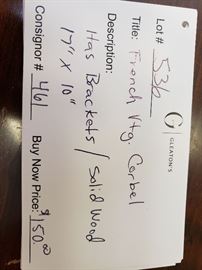 G
GLEATON'S
Lot # 536
Title: French Vtg. Corbel
Description:
Has Brackets / Solid Wood
17" x 10"
Consignor # 461 Buy Now Price: $150.00